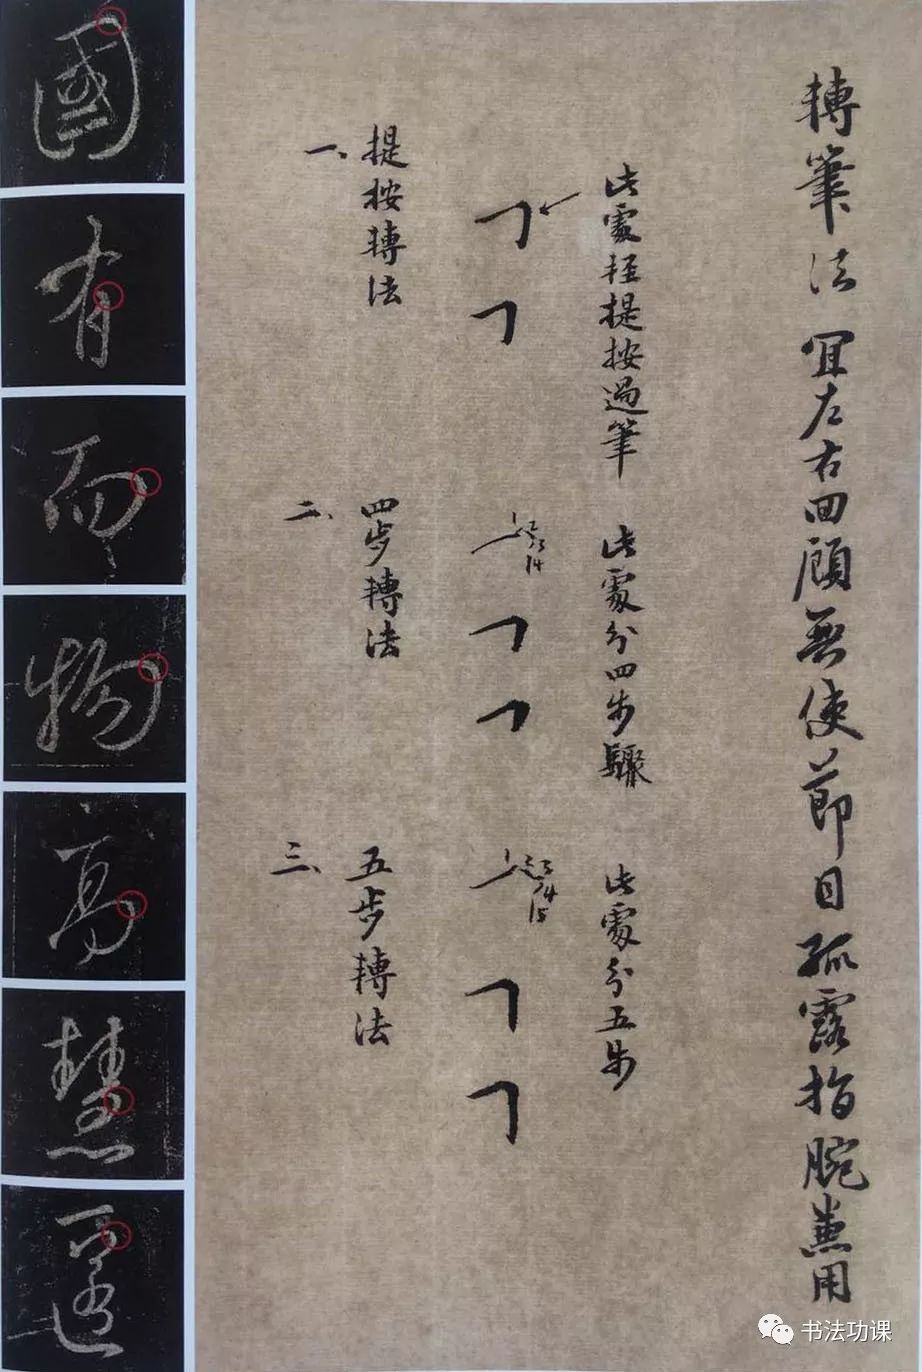 轉筆法 宜左右回顧無使節目孤露指腕兼用
此處輕提按過筆
一、提按轉法
此處分四步驟
1 2 3 4
二、四步轉法
此處分五步
1 2 3 4 5
三、五步轉法
國
有
而
物
高
慧
书法功课